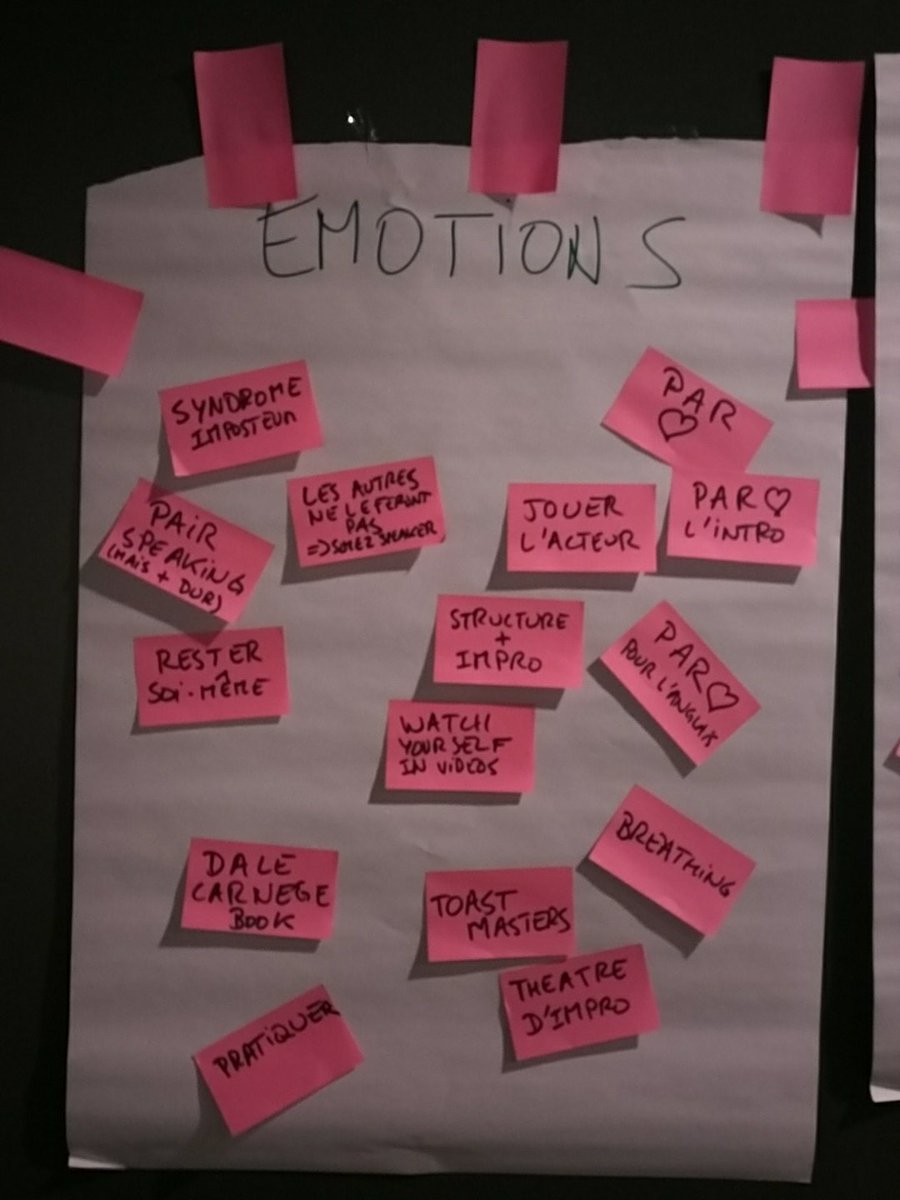 EMOTIONS
SYNDROME
IMPOSTEUR
PAR
♡
LES AUTRES
NE LE FERONT
PAS
=> SOYEZ SPEAKER
PAIR
SPEAKING
(MAIS + DUR)
JOUER
L'ACTEUR
PAR ♡
L'INTRO
RESTER
SOI-MÊME
STRUCTURE
+
IMPRO
PAR ♡
POUR L'ANGLAIS
WATCH
YOURSELF
IN VIDEOS
BREATHING
DALE
CARNEGE
BOOK
TOAST
MASTERS
THEATRE
D'IMPRO
PRATIQUER